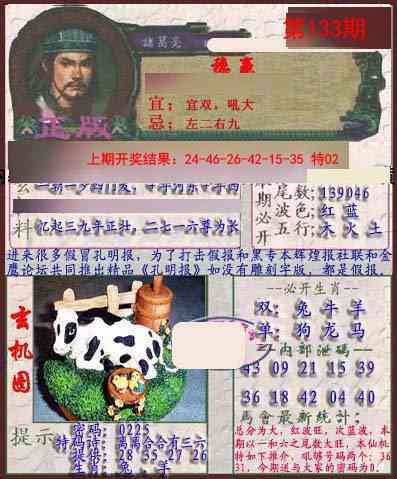 第133期
諸葛亮
稳赢
宜；宜双，吼大
忌；左二右九
正版
上期开奖结果：24-46-26-42-15-35 特02
料
忆起三九年正壮，二七一六尊为长
本期必开
尾数;139046
波色;红 蓝
五行;木 火 土
进来很多假冒孔明报，为了打击假报和黑专本辉煌报社联和金
鹰论坛共同推出精品《孔明报》如没有雕刻字版，都是假报。
玄机图
--必开生肖--
双: 兔 牛 羊
单: 狗 龙 马
内部泄码--
43 09 21 15 39
36 18 42 04 40
馬會最新统计:
总分为大，红波旺，次蓝波，本
期以一和六之尾数大旺，本仙机
特如下推介，吼够号码两个: 36
31，今期送与大家的密码为0.
提示
密码: 0225
特码诗: 离离合合有三六
提供: 28 35 27 26
生肖: 兔，羊